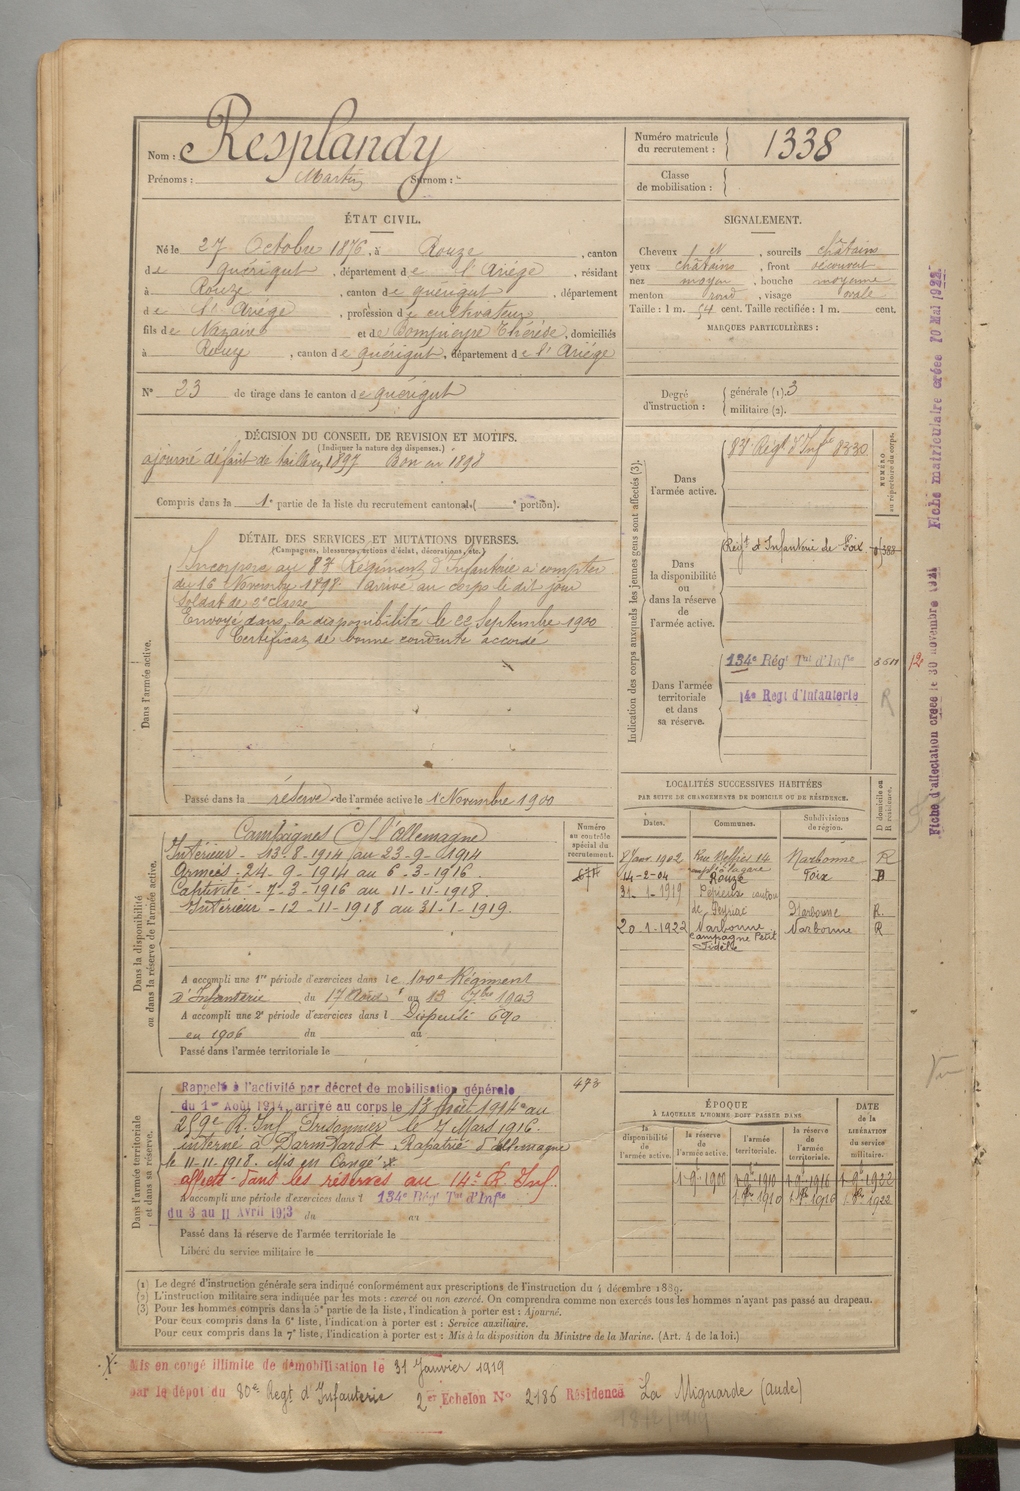 Nom : Resplandy
Prénoms : Martin Surnom : -
Numéro matricule du recrutement : 1338
Classe de mobilisation :
ÉTAT CIVIL.
Né le 27 Octobre 1876, à Rouze, canton
de Quérigut, département de l'Ariège, résidant
à Rouze, canton de Quérigut, département
de l'Ariège, profession de cultivateur
fils de Nazaire et de Bompieyre Thérèse, domiciliés
à Rouze, canton de Quérigut, département de l'Ariège
SIGNALEMENT.
Cheveux , sourcils châtains
yeux châtains, front découvert
nez moyen, bouche moyenne
menton rond, visage ovale
Taille : 1 m. 54 cent. Taille rectifiée : 1 m. cent.
MARQUES PARTICULIÈRES :
N° 23 de tirage dans le canton de Quérigut
Degré d'instruction : générale (1). 3
militaire (2).
DÉCISION DU CONSEIL DE REVISION ET MOTIFS.
(Indiquer la nature des dispenses.)
ajourné défaut de taille en 1897 Bon en 1898
Compris dans la 1e partie de la liste du recrutement cantonal (    e portion).
DÉTAIL DES SERVICES ET MUTATIONS DIVERSES.
(Campagnes, blessures, actions d'éclat, décorations, etc.)
Dans l'armée active.
Incorporé au 87 Régiment d'infanterie à compter
du 16 Novembre 1898 arrivé au corps le dit jour
Soldat de 2e classe
Envoyé dans la disponibilité le 22 Septembre 1900
Certificat de bonne conduite accordé
Passé dans la réserve de l'armée active le 1 Novembre 1900
Indication des corps auxquels les jeunes gens sont affectés (3).
NUMÉRO au répertoire du corps.
Dans l'armée active.
87 Régt d'Infie 8330
Dans la disponibilité ou dans la réserve de l'armée active.
Régt d'Infanterie de Foix
Dans l'armée territoriale et dans sa réserve.
134e Régt Tal d'Infie
14e Regt d'Infanterie
R
12
Fiche d'affectation créée le 30 novembre 1921 Fiche matriculaire créée 10 Mai 1922
Dans la disponibilité ou dans la réserve de l'armée active.
Campagnes C/ l'Allemagne
Intérieur - 13-8-1914 au 23-9-1914
Armées - 24-9-1914 au 6-3-1916
Captivité - 7-3-1916 au 11-11-1918
Intérieur - 12-11-1918 au 31-1-1919.
A accompli une 1re période d'exercices dans le 100e Régiment
d'Infanterie du 17 Août au 13 7bre 1903
A accompli une 2e période d'exercices dans l Dispensé 690
en 1906 du au
Passé dans l'armée territoriale le
Numéro au contrôle spécial du recrutement.
674
473
LOCALITÉS SUCCESSIVES HABITÉES
PAR SUITE DE CHANGEMENTS DE DOMICILE OU DE RÉSIDENCE.
Dates. Communes. Subdivisions de région. D domicile ou R résidence.
8 Janv. 1902 Narbonne R
14-2-04 Rouze Foix D
31-1-1919 Pépieux canton
de Peyriac Narbonne R.
20-1-1922 Narbonne Narbonne R
Campagne Petit
Fidèle
Dans l'armée territoriale et dans sa réserve.
Rappelé à l'activité par décret de mobilisation générale
du 1er Août 1914, arrivé au corps le 13 Août 1914 au
259e R. Inf Prisonnier le 7 Mars 1916.
interné à Darmstardt. Rapatrié d'Allemagne
le 11-11-1918. Mis en Congé x
affecté dans les réserves au 14e R. Inf.
A accompli une période d'exercices dans l 134e Régt Tal d'Infie
du 3 au 11 Avril 1913 du au
Passé dans la réserve de l'armée territoriale le
Libéré du service militaire le
ÉPOQUE
À LAQUELLE L'HOMME DOIT PASSER DANS
DATE de la LIBÉRATION du service militaire.
la disponibilité de l'armée active. la réserve de l'armée active. l'armée territoriale. la réserve de l'armée territoriale.
1-9-1900 1-9-1910 1-9-1916 1-9-1922
(1) Le degré d'instruction générale sera indiqué conformément aux prescriptions de l'instruction du 4 décembre 1889.
(2) L'instruction militaire sera indiquée par les mots : exercé ou non exercé. On comprendra comme non exercés tous les hommes n'ayant pas passé au drapeau.
(3) Pour les hommes compris dans la 5e partie de la liste, l'indication à porter est : Ajourné.
Pour ceux compris dans la 6e liste, l'indication à porter est : Service auxiliaire.
Pour ceux compris dans la 7e liste, l'indication à porter est : Mis à la disposition du Ministre de la Marine. (Art. 4 de la loi.)
x Mis en congé illimité de démobilisation le 31 Janvier 1919
par le dépot du 80e Regt d'Infanterie 2e Echelon N° 2186 Résidence La Mignarde (Aude)